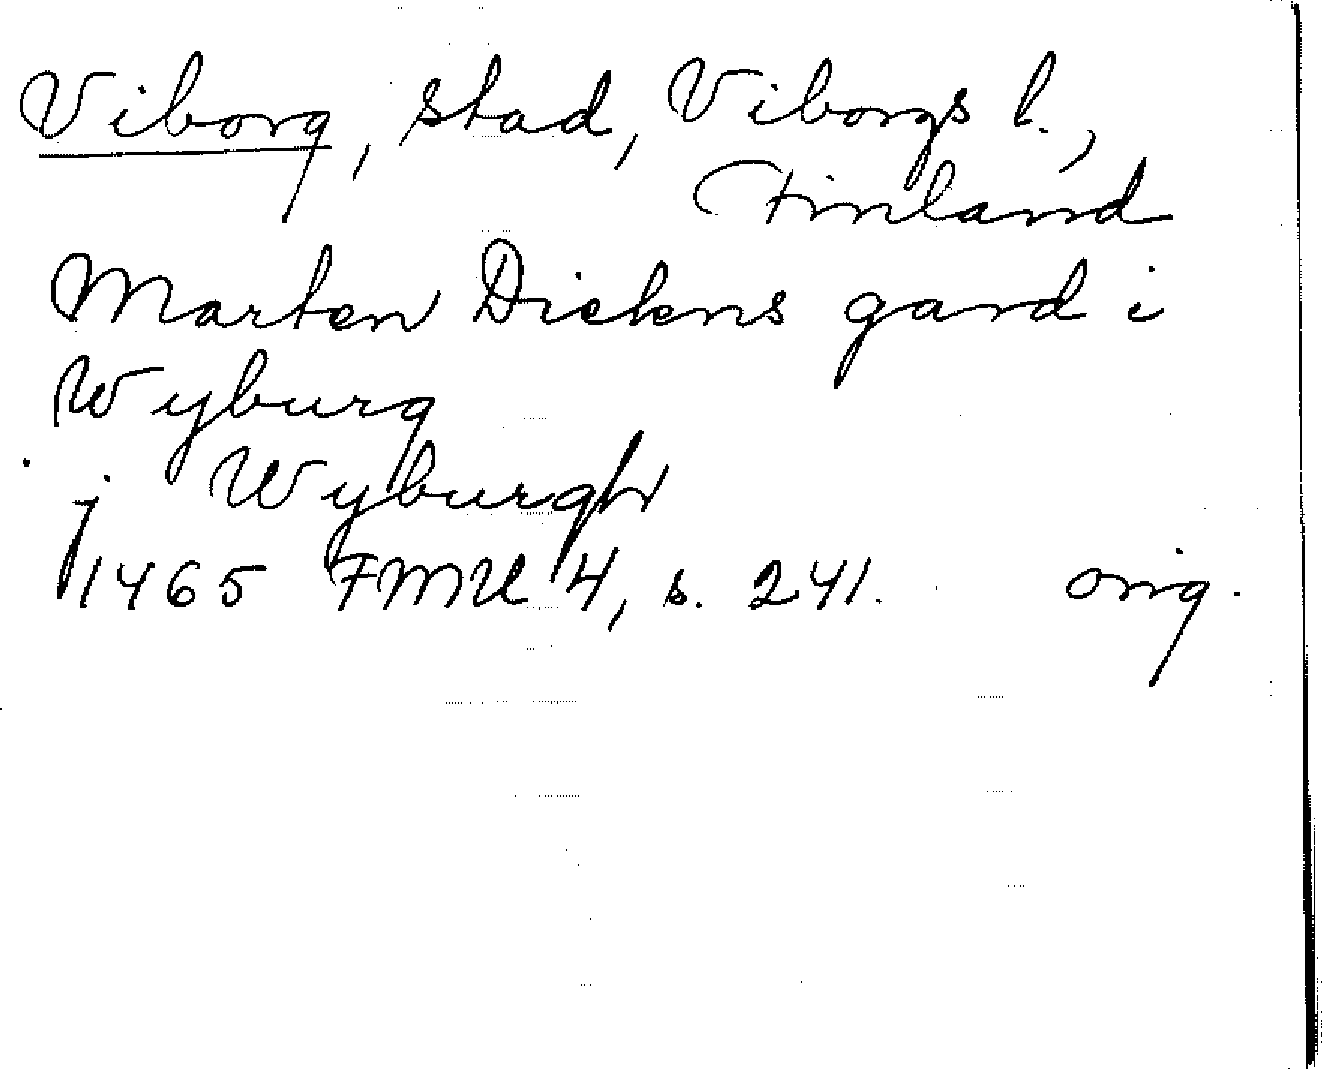 Viborg, stad, Viborgs l.,
Finland
Marten Diekns gard i
Wyburg
j Wyburgh
1465 FMU 4, s. 241. orig.